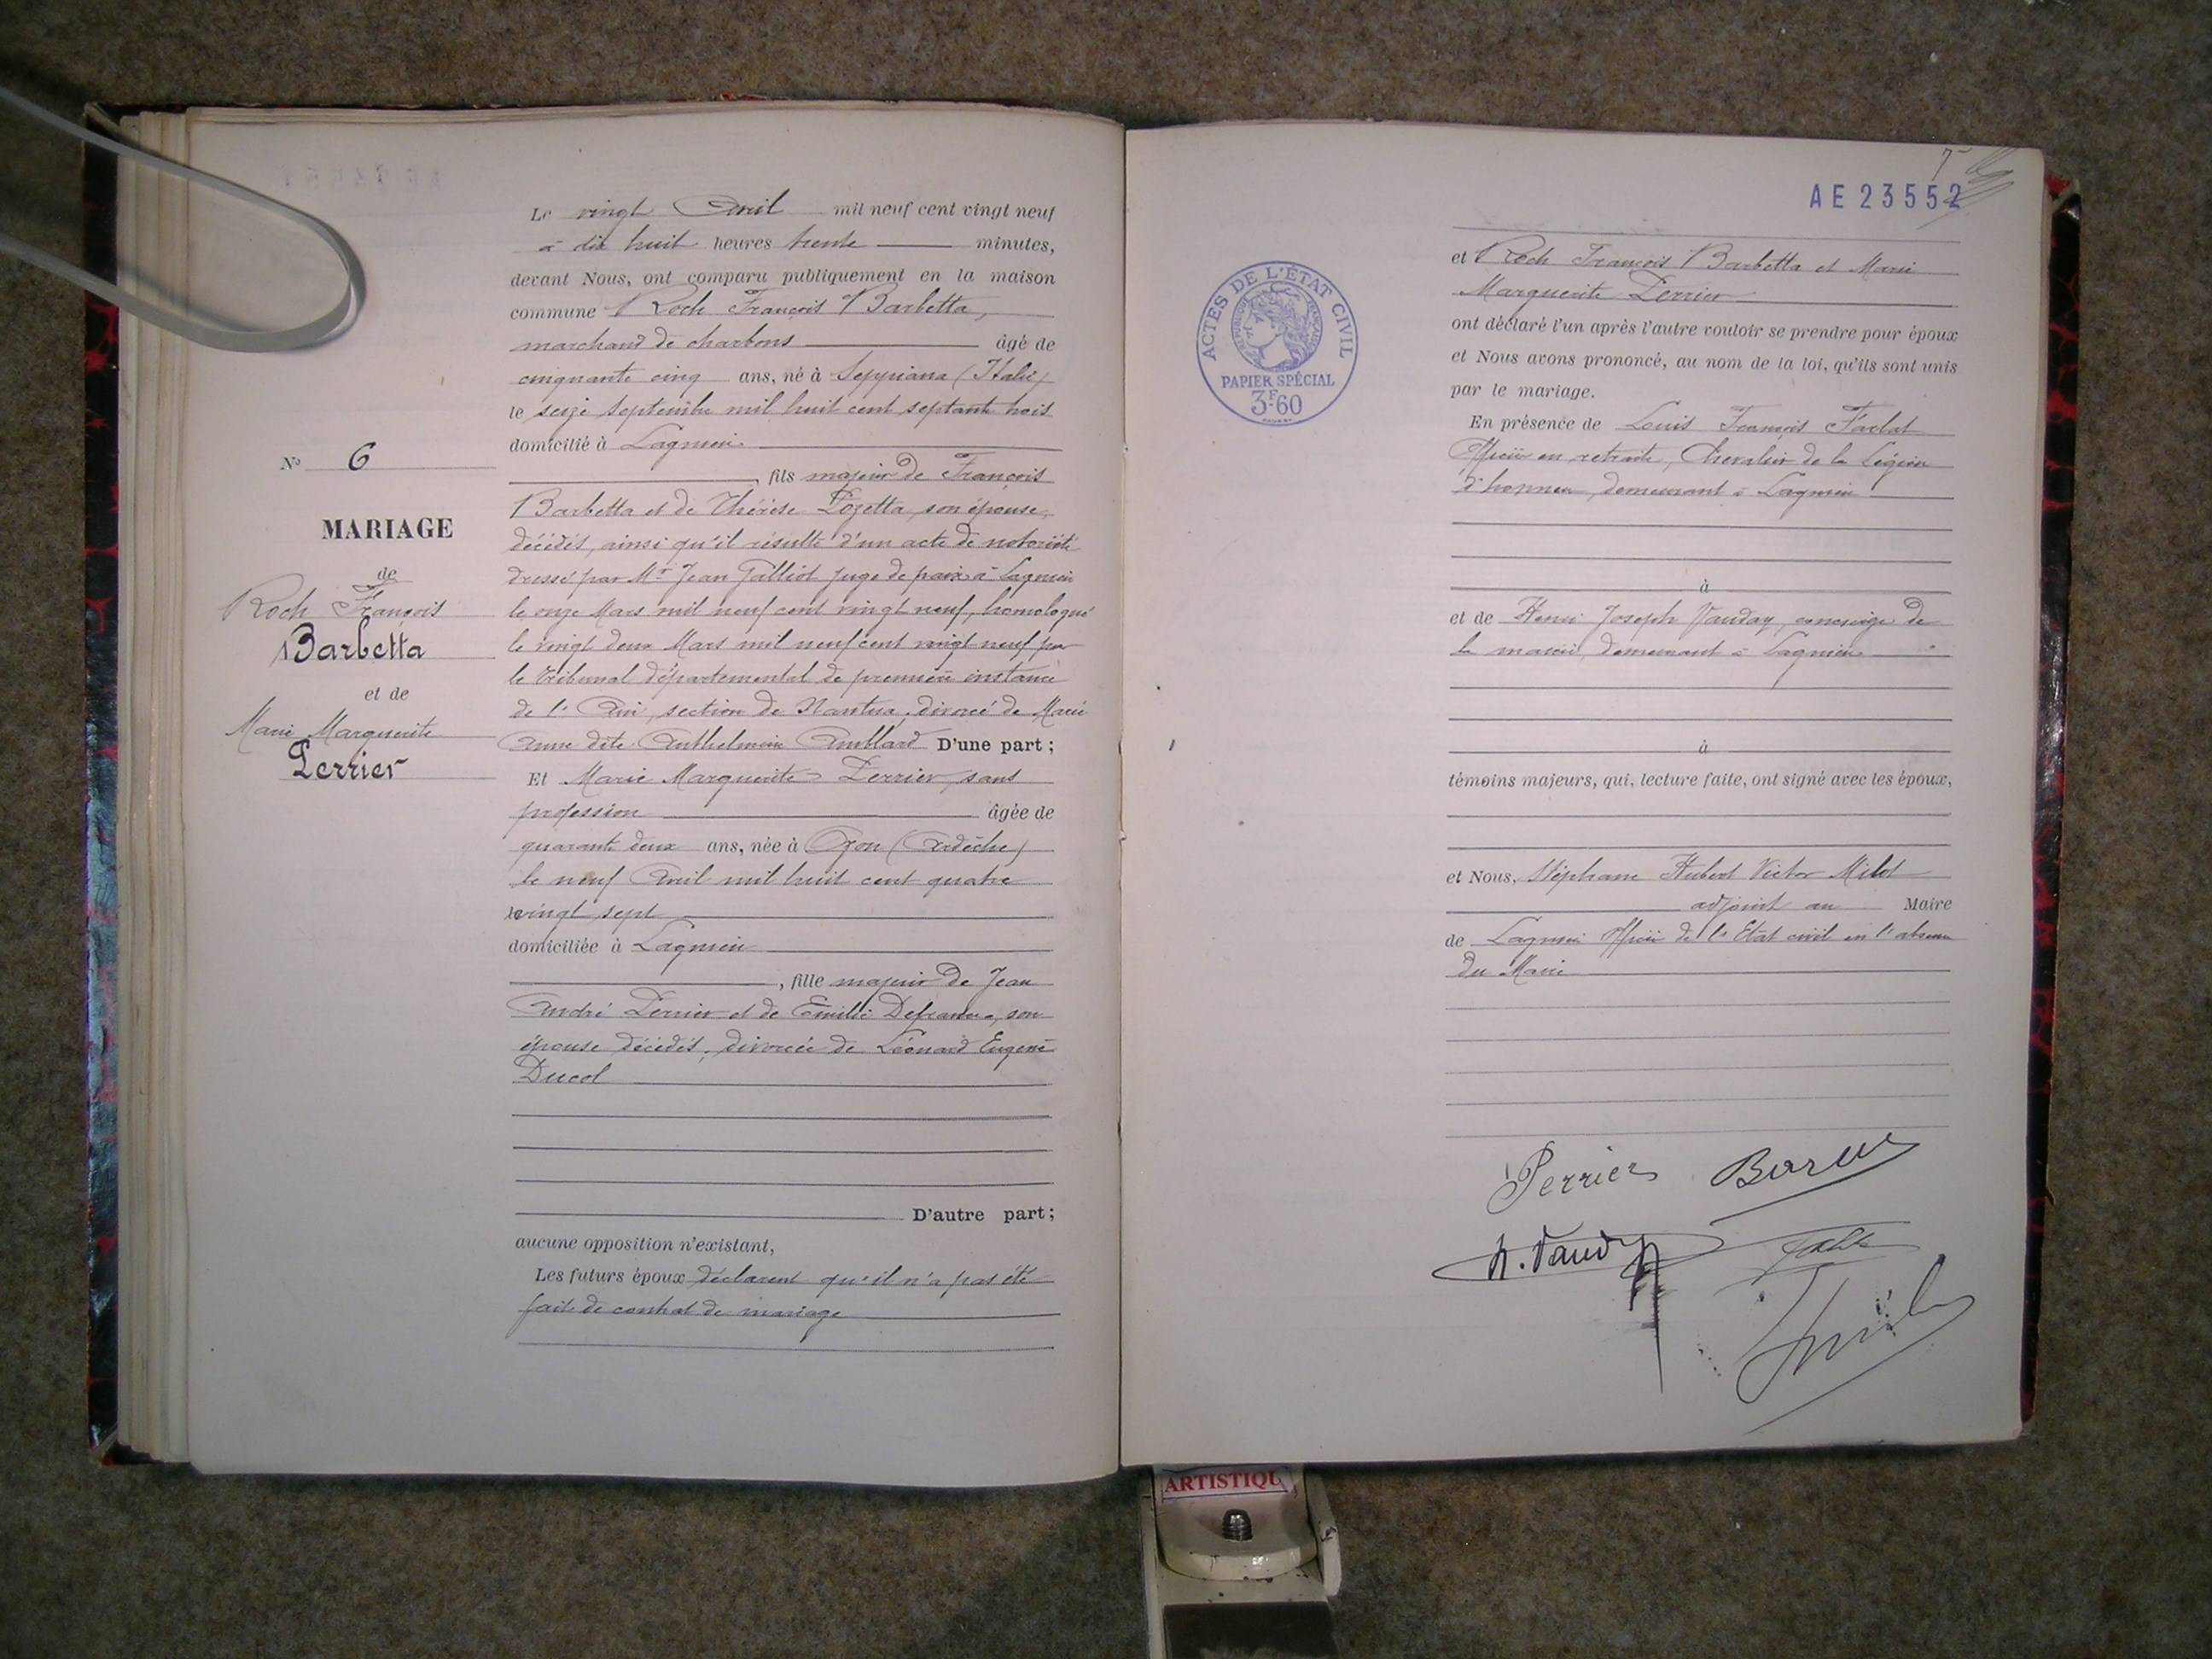 N° 6
MARIAGE
de
Roch François
Barbetta
et de
Marie Marguerite
Perrier
Le vingt Avril mil neuf cent vingt neuf
à dix huit heures trente minutes,
devant Nous, ont comparu publiquement en la maison
commune Roch François Barbetta,
marchand de charbons âgé de
cinquante cinq ans, né à Seppiana (Italie)
le seize Septembre mil huit cent septante trois
domicilié à Lagnieu
, fils majeur de François
Barbetta et de Thérèse Pozetta, son épouse,
décédés, ainsi qu'il résulte d'un acte de notoriété
dressé par Mr Jean Galliot juge de paix à Lagnieu
le onze Mars mil neuf cent vingt neuf, homologué
le vingt deux Mars mil neuf cent vingt neuf par
le Tribunal départemental de première instance
de l'Ain, section de Nantua, divorcé de Marie
Anne dite Anthelmine Amblard D'une part;
Et Marie Marguerite Perrier, sans
profession âgée de
quarante deux ans, née à Ozon (Ardèche)
le neuf Avril mil huit cent quatre
vingt sept
domiciliée à Lagnieu
, fille majeure de Jean
André Perrier et de Emilie Defrance, son
épouse décédés, divorcée de Léonard Eugène
Ducol
D'autre part;
aucune opposition n'existant,
Les futurs époux déclarent qu'il n'a pas été
fait de contrat de mariage
7
AE 23552
ACTES DE L'ÉTAT CIVIL
RÉPUBLIQUE FRANÇAISE
PAPIER SPÉCIAL
3F60
et Roch François Barbetta et Marie
Marguerite Perrier
ont déclaré l'un après l'autre vouloir se prendre pour époux
et Nous avons prononcé, au nom de la loi, qu'ils sont unis
par le mariage.
En présence de Louis François
Officier en retraite, Chevalier de la Légion
d'honneur, demeurant à Lagnieu
à
et de Henri Joseph Vauday, concierge de
la mairie, demeurant à Lagnieu
à
témoins majeurs, qui, lecture faite, ont signé avec les époux,
et Nous, Stéphane Hubert Victor Milot
adjoint au Maire
de Lagnieu Officier de l'Etat civil en l'absence
du Maire
Perrier
H. Vauday
ARTISTIQU